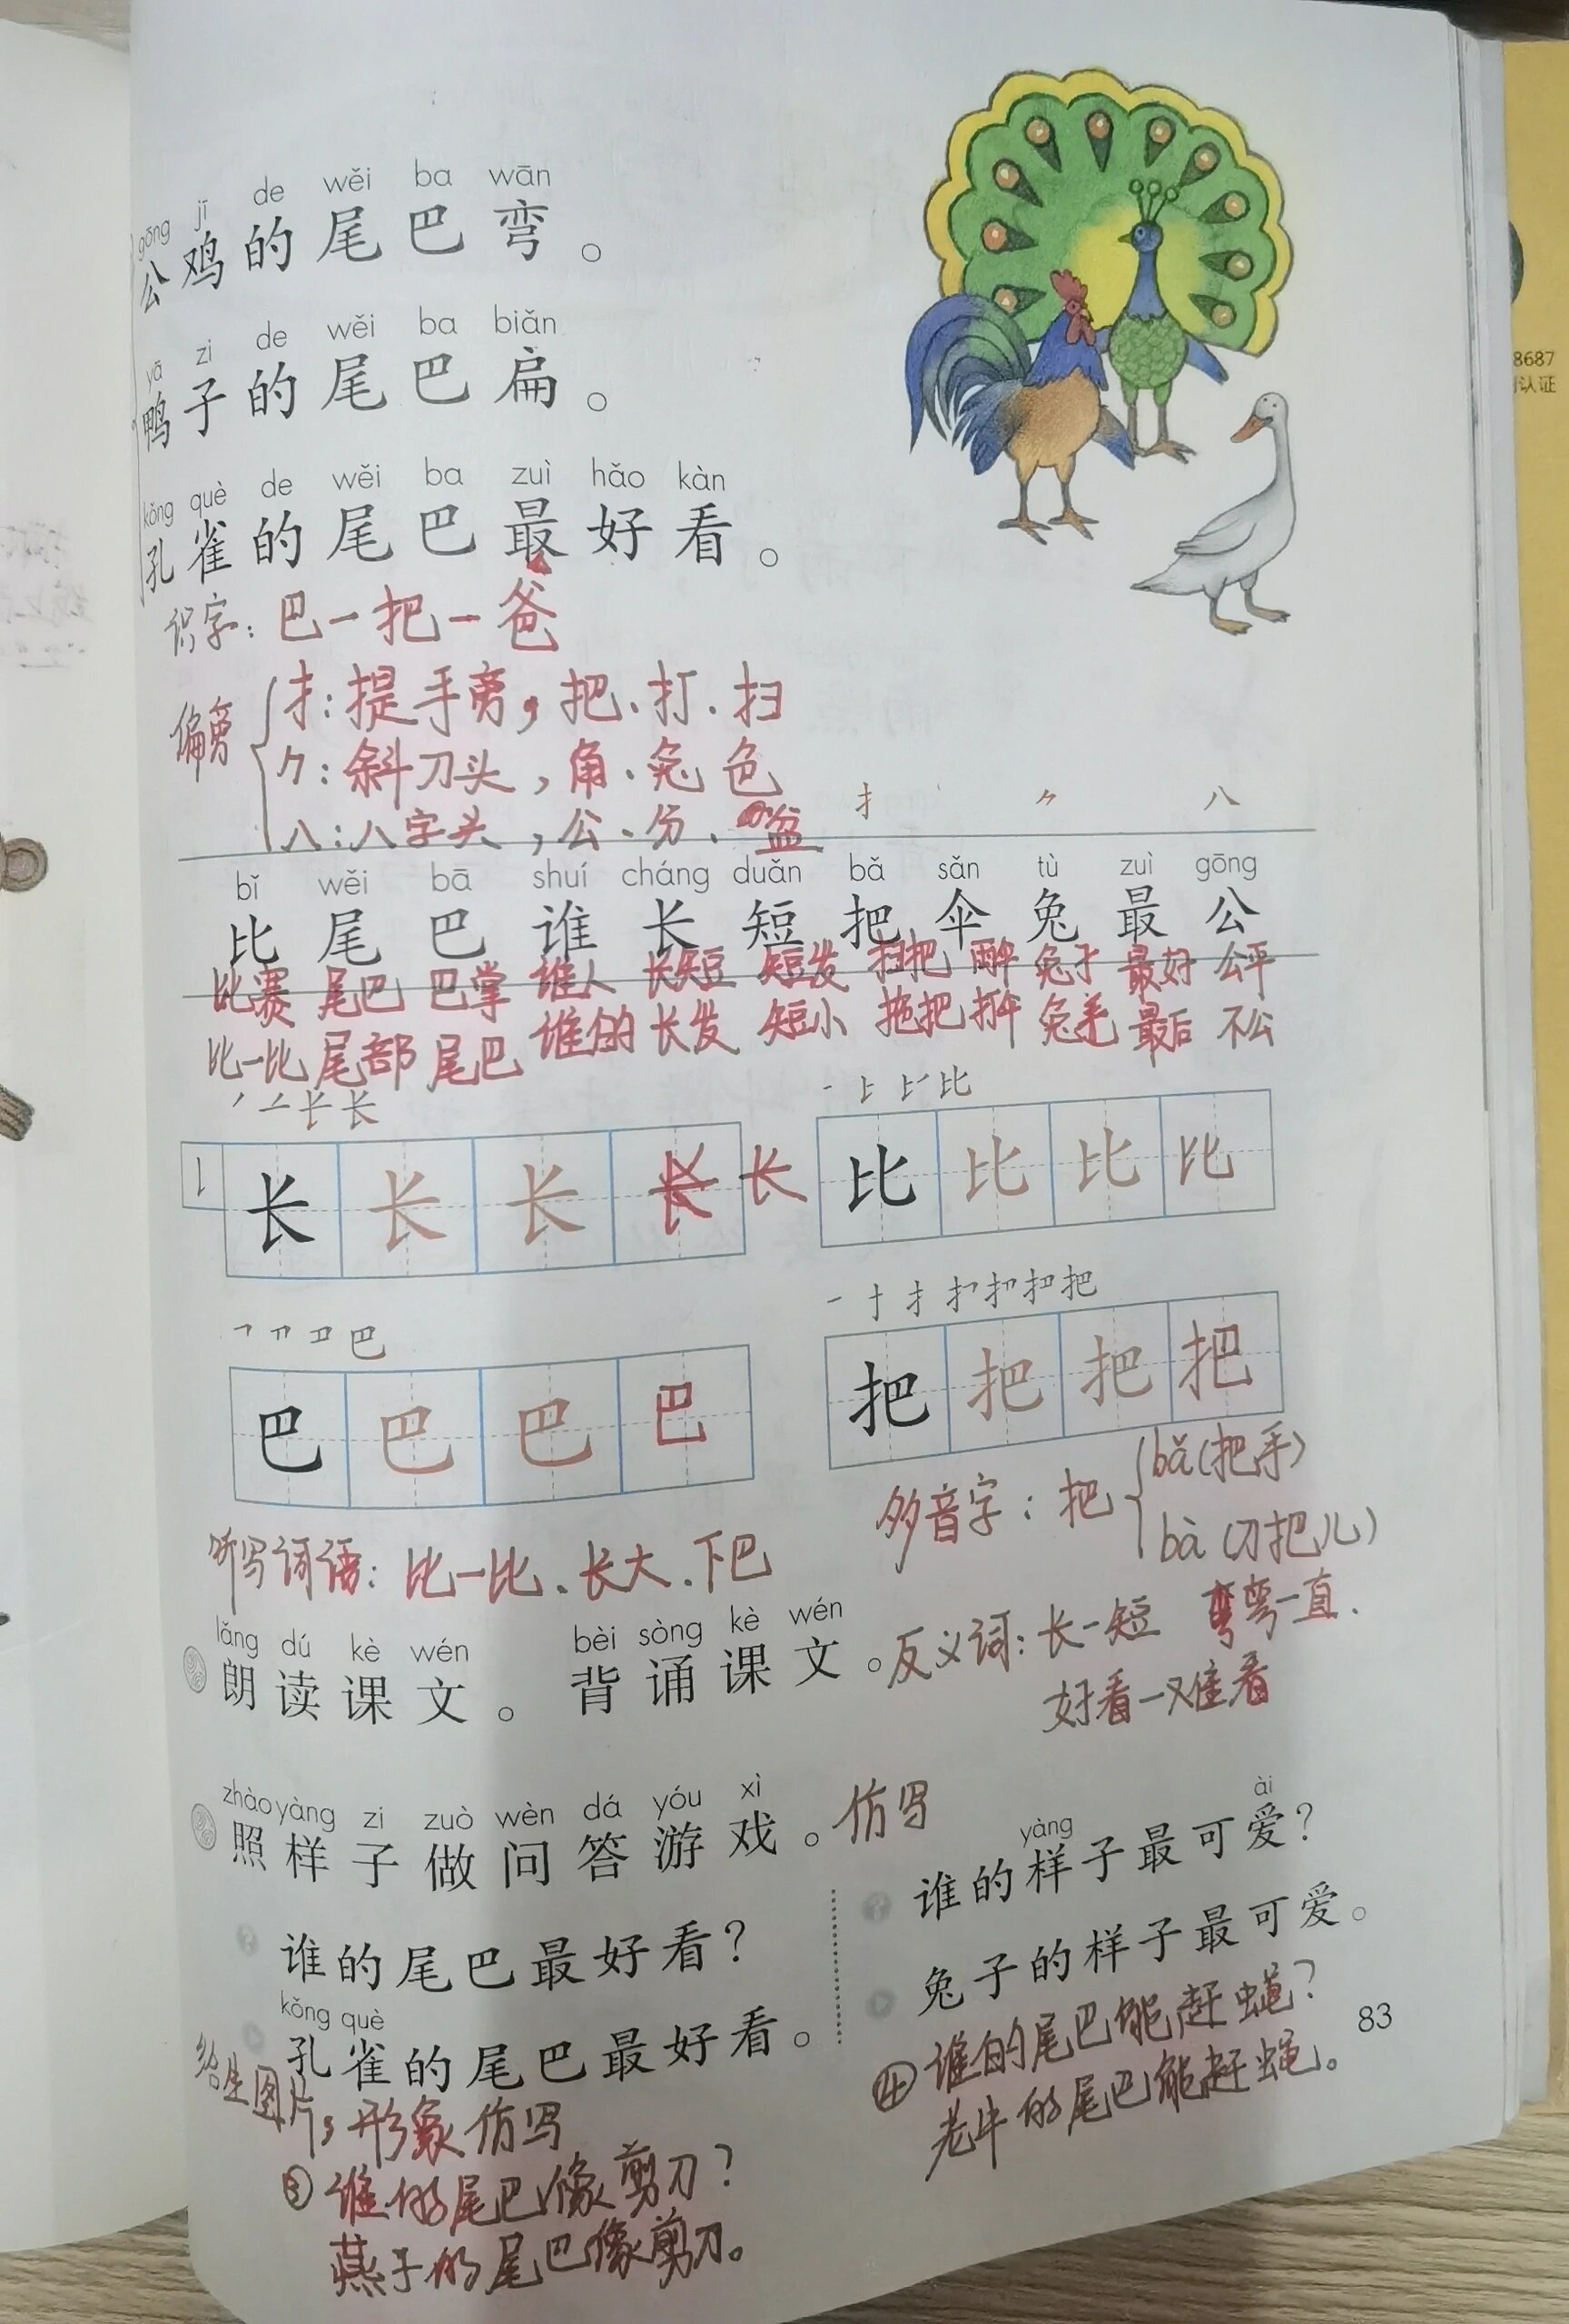 gōng jī de wěi ba wān
公鸡的尾巴弯。
yā zi de wěi ba biǎn
鸭子的尾巴扁。
kǒng què de wěi ba zuì hǎo kàn
孔雀的尾巴最好看。
识字：巴一把一爸
偏旁
扌：提手旁，把、打、扫
⺈：斜刀头，角、兔 色
八：八字头，公、分、盆
扌 ⺈ 八
bǐ wěi bā shuí cháng duǎn bǎ sǎn tù zuì gōng
比 尾 巴 谁 长 短 把 伞 兔 最 公
比赛 尾巴 巴掌 谁人 长短 短发 扫把 雨伞 兔子 最好 公平
比一比 尾部 尾巴 谁的 长发 短小 拖把 打伞 兔毛 最后 不公
长
长 长 长 长 长
比
比 比 比 比
巴
巴 巴 巴 巴
把
把 把 把 把
多音字：把 bǎ（把手）
bà（刀把儿）
听写词语：比一比、长大、下巴
lǎng dú kè wén bèi sòng kè wén
朗读课文。 背诵课文。
反义词：长一短 弯弯一直.
好看一难看
zhào yàng zi zuò wèn dá yóu xì
照样子做问答游戏。
仿写
谁的尾巴最好看？
kǒng què
孔雀的尾巴最好看。
yàng ài
谁的样子最可爱？
兔子的样子最可爱。
给生图片，形象仿写
③谁的尾巴像剪刀？
燕子的尾巴像剪刀。
④谁的尾巴能赶蝇？
老牛的尾巴能赶蝇。
83
8687
认证